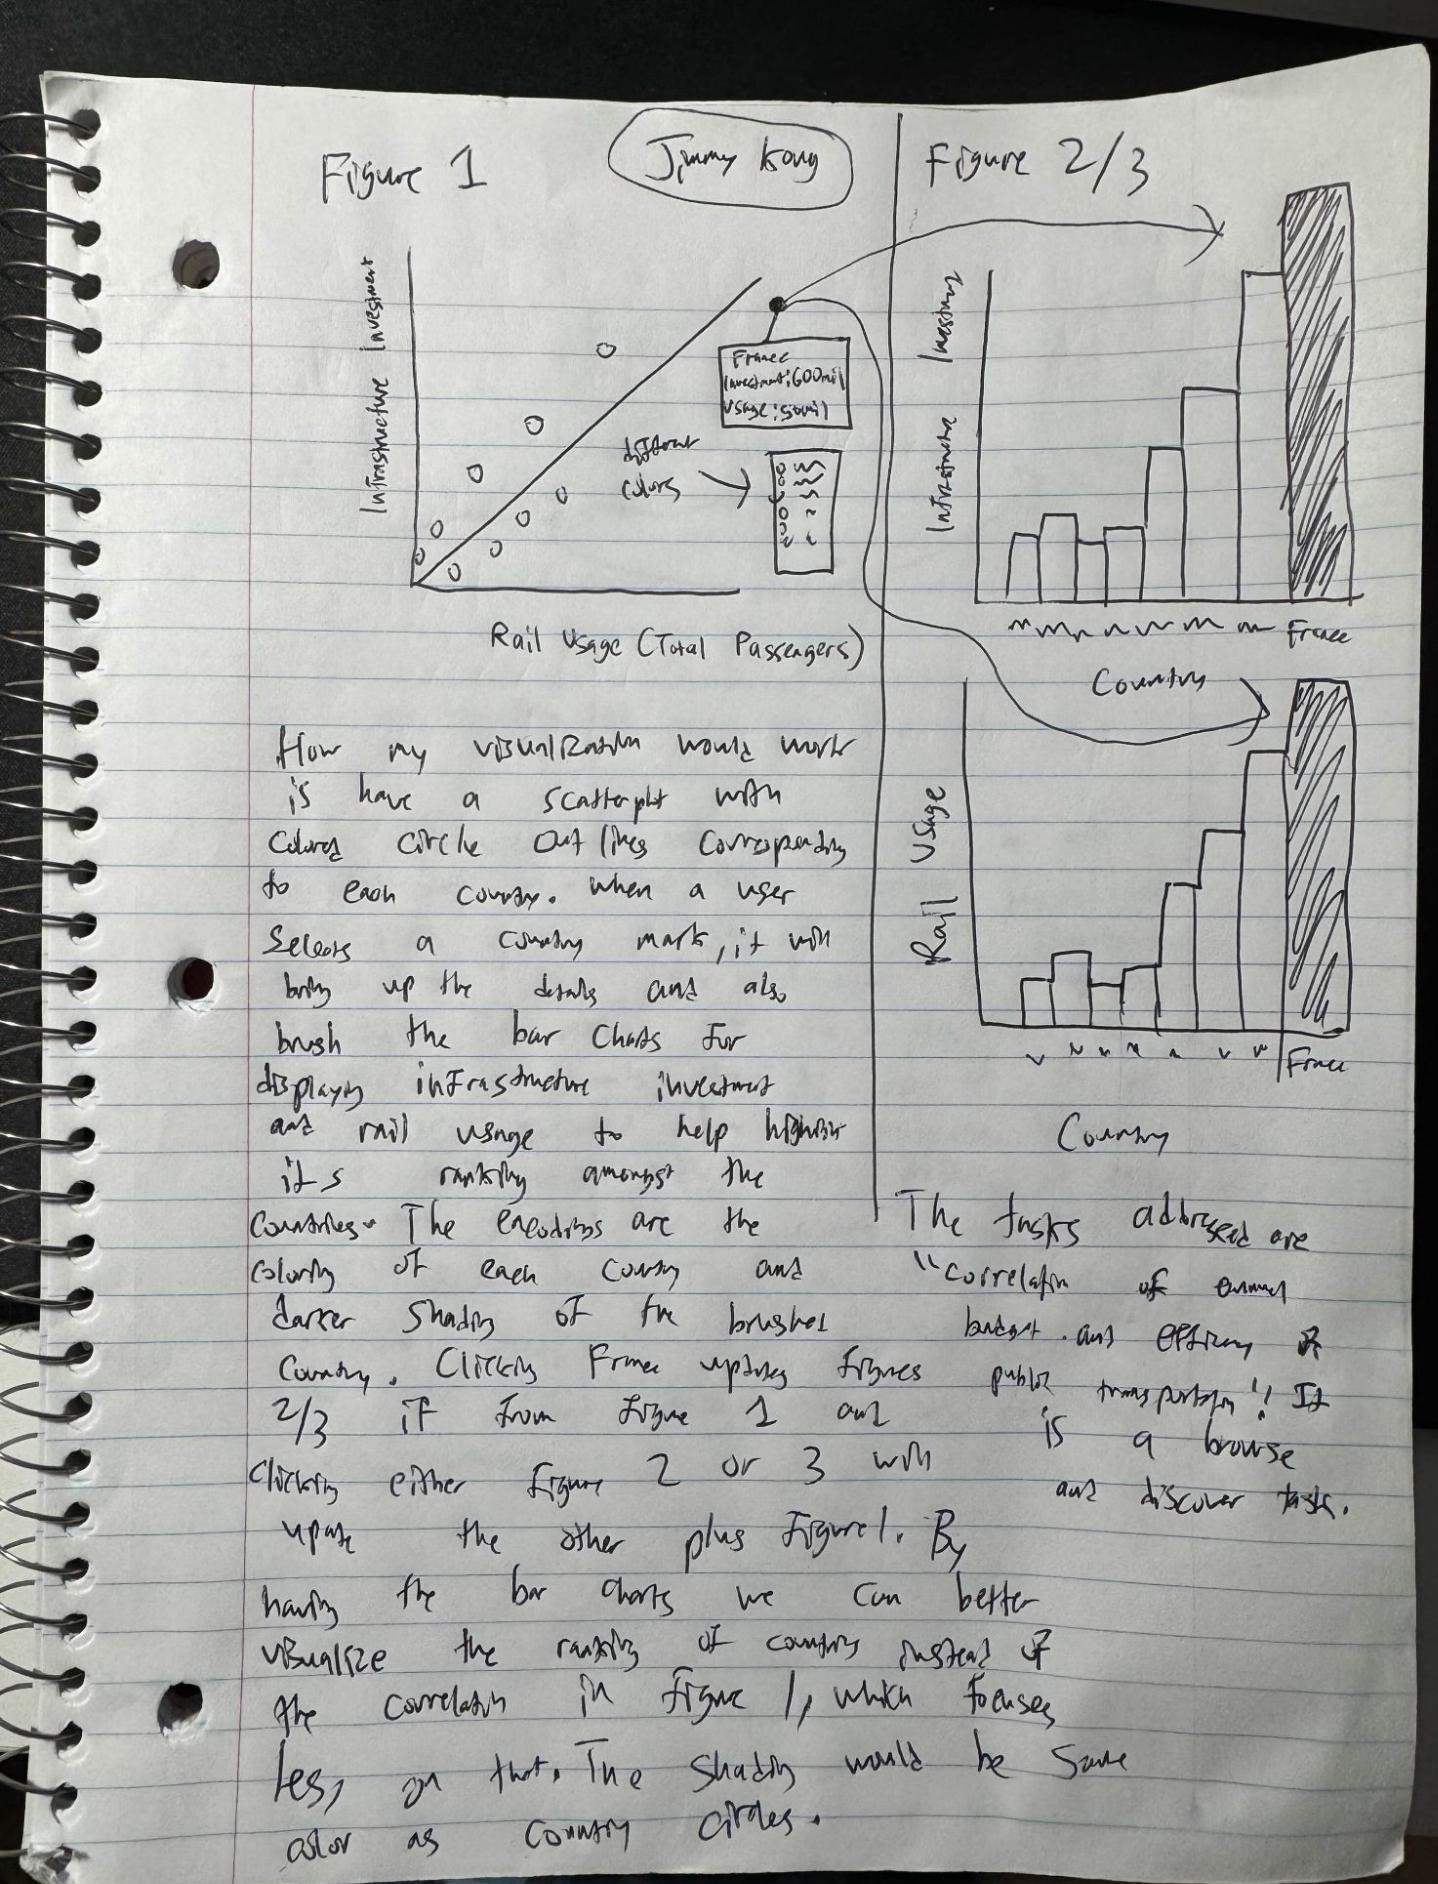 Figure 1
Jimmy Kong
Infrastructure Investment
France
Investment: 600mil
Usage: 50mil
different
colors
Rail Usage (Total Passengers)
Figure 2/3
Infrastructure Investmy
France
Country
Rail Usage
France
Country
How my visualization would work
is have a scatterplot with
colored circle outlines corresponding
to each country. When a user
selects a country mark, it will
bring up the details and also
brush the bar charts for
displaying infrastructure investment
and rail usage to help highlight
its ranking amongst the
countries. The encodings are the
coloring of each country and
darker shading of the brushed
country. Clicking France updates figures
2/3 if from figure 1 and
clicking either figure 2 or 3 will
update the other plus figure 1. By
having the bar charts we can better
visualize the ranking of country instead of
the correlation in figure 1, which focuses
less on that. The shading would be same
color as country circles.
The tasks addressed are
"correlation of annual
budget and efficiency of
public transportation". It
is a browse
and discover task.